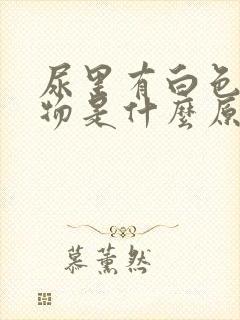 尿里有白色
物是什麼原
慕薰然